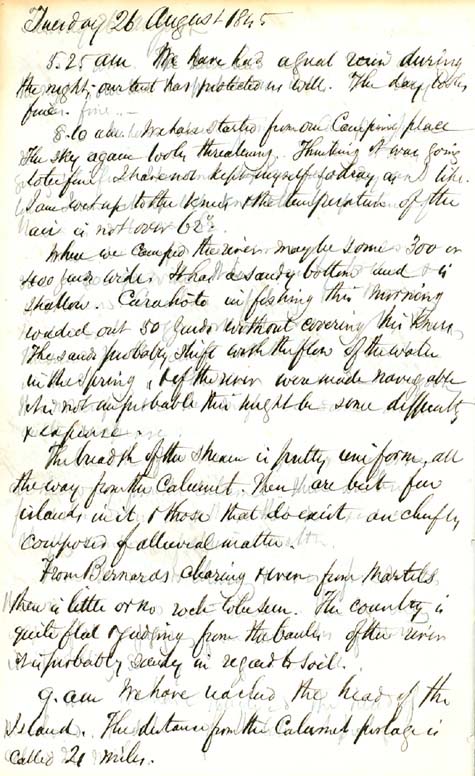 Tuesday 26 August 1845
5.25 am We have had a good rain during
the night, our tent has protected us well. The day looks
fine.
8.10 a.m. We have started from our Camping place
The sky again looks threatening. Thinking it was going
to be fine I have not kept myself so dry as I like.
I am wet up to the knees & the temperature of the
air is not over 62°.
Where we camped the river may be some 300 or
400 yards wide. It had a sandy bottom and is
shallow. in fishing this morning
waded out 50 yards without covering his knees.
The sands probably shift with the flow of the water
in the spring, & if the river were made navigable
it is not improbable this might be some difficulty
& expense.
The breadth of the stream is pretty uniform, all
the way from the Calumet. There are but few
islands in it & those that do exist are chiefly
composed of alluvial matter.
From Bernards clearing & even from Martels
there is little or no rock to be seen. The country is
quite flat & judging from the banks of the river
it is probably sandy in regard to soil.
9. am We have reached the head of the
Island. The distance from the Calumet portage is
called 21 miles.